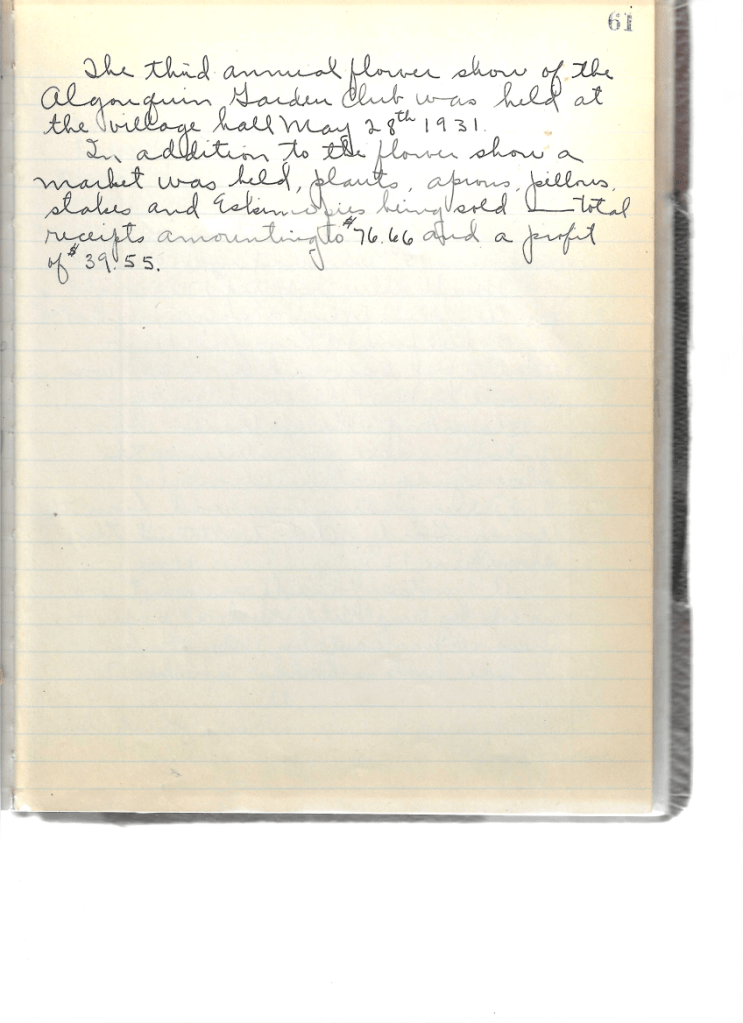 61
The third annual flower show of the
Algonquin Garden Club was held at
the village hall May 28th 1931.
In addition to the flower show a
market was held, plants, aprons, pillows,
stakes and Eskimo pies being sold — total
receipts amounting to $76.66 and a profit
of $39.55.